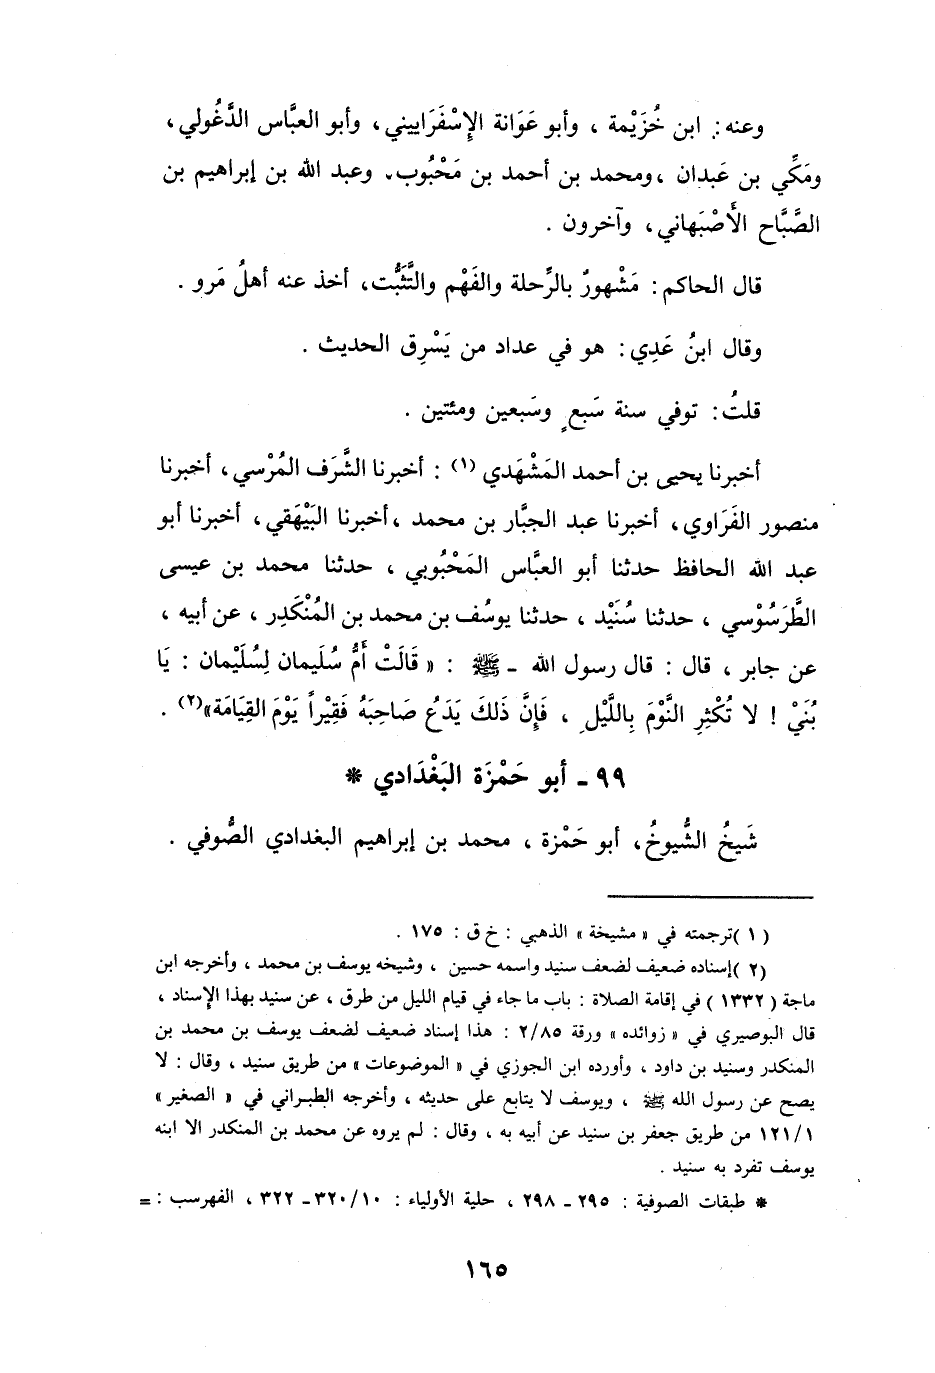 وعنه: ابن خُزَيْمة ، وأبو عَوَانة الإِسْفَراييني، وأبو العبَّاس الدَّغُولي،
ومَكِّي بن عَبدان ،ومحمد بن أحمد بن مَحْبُوب، وعبد الله بن إبراهيم بن
الصَّبَّاح الأَصْبَهاني، وآخرون .
قال الحاكم: مَشْهورٌ بالرِّحلة والفَهْم والتَّثَبُّت، أخذ عنه أهلُ مَرو .
وقال ابنُ عَدِي: هو في عداد من يَسْرِق الحديث .
قلتُ: توفي سنة سَبعٍ وسَبعين ومئتين .
أخبرنا يحيى بن أحمد المَشْهَدي (١) : أخبرنا الشَّرَف المُرْسي، أخبرنا
منصور الفَرَاوي، أخبرنا عبد الجبَّار بن محمد ،أخبرنا البَيْهَقي، أخبرنا أبو
عبد الله الحافظ حدثنا أبو العبَّاس المَحْبُوبي ، حدثنا محمد بن عيسى
الطَّرَسُوْسي ، حدثنا سُنَيْد ، حدثنا يوسُف بن محمد بن المُنْكَدِر ، عن أبيه ،
عن جابر ، قال : قال رسول الله ـ ﷺ : « قَالَتْ أُمُّ سُلَيمان لِسُلَيْمان : يَا
بُنَيْ ! لا تُكْثِرِ النَّوْمَ بِاللَّيْلِ ، فَإِنَّ ذَلكَ يَدَعُ صَاحِبَهُ فَقِيْراً يَوْمَ القِيَامَة»(٢) .
٩٩ ـ أبو حَمْزَة البَغْدَادي *
شَيخُ الشُّيوخُ، أبو حَمْزة ، محمد بن إبراهيم البغدادي الصُّوفي .
(١)ترجمته في « مشيخة » الذهبي : خ ق : ١٧٥ .
(٢)إسناده ضعيف لضعف سنيد واسمه حسين ، وشيخه يوسف بن محمد ، وأخرجه ابن
ماجة (١٣٣٢) في إقامة الصلاة : باب ما جاء في قيام الليل من طرق ، عن سنيد بهذا الإسناد ،
قال البوصيري في « زوائده » ورقة ٢/٨٥ : هذا إسناد ضعيف لضعف يوسف بن محمد بن
المنكدر وسنيد بن داود ، وأورده ابن الجوزي في « الموضوعات » من طريق سنيد ، وقال : لا
يصح عن رسول الله ﷺ ، ويوسف لا يتابع على حديثه ، وأخرجه الطبراني في « الصغير »
١٢١/١ من طريق جعفر بن سنيد عن أبيه به ، وقال : لم يروه عن محمد بن المنكدر الا ابنه
يوسف تفرد به سنيد .
* طبقات الصوفية : ٢٩٥ ـ ٢٩٨ ، حلية الأولياء : ٣٢٠/١٠ ـ ٣٢٢ ، الفهرست : =
١٦٥